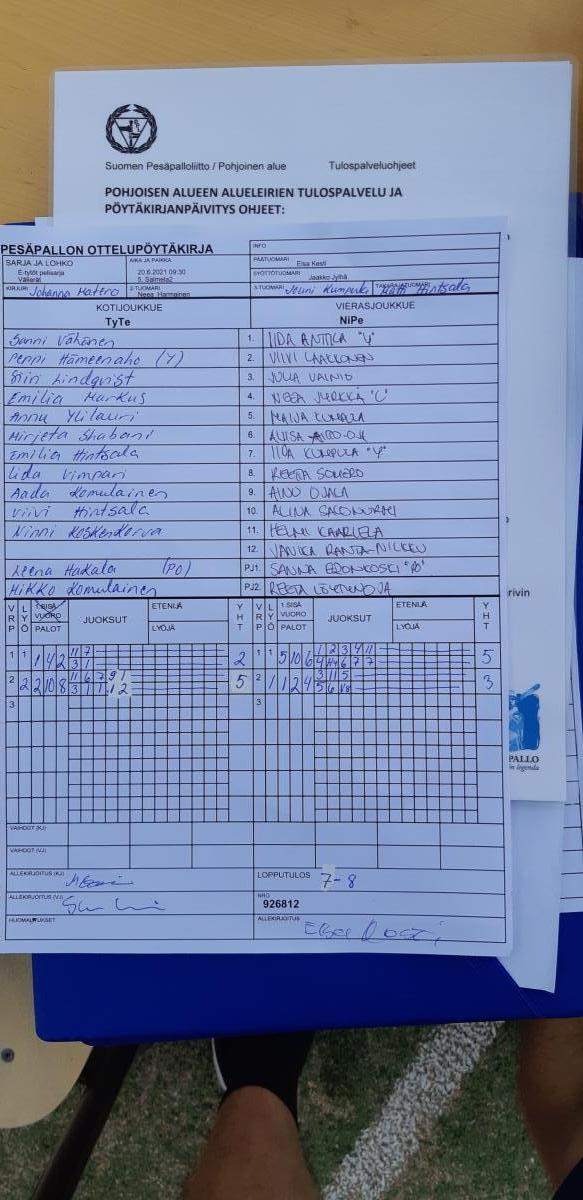 Suomen Pesäpalloliitto / Pohjoinen alue Tulospalveluohjeet
POHJOISEN ALUEEN ALUELEIRIEN TULOSPALVELU JA
PÖYTÄKIRJANPÄIVITYS OHJEET:
PESÄPALLON OTTELUPÖYTÄKIRJA INFO
SARJA JA LOHKO AIKA JA PAIKKA PÄÄTUOMARI Elsa Kesti
E-tytöt pelisarja 20.6.2021 09:30 SYÖTTÖTUOMARI Jaakko Jylhä
Välierät 5. Salmela2
KIRJURI Johanna Matero 2-TUOMARI Neea Harmainen 3-TUOMARI Jouni Kumpula TAKARAJATUOMARI Matti Hintsala
KOTIJOUKKUE VIERASJOUKKUE
TyTe NiPe
Sanni Vähänen 1. IIDA ANTTILA "V"
Peppi Hämeenaho (Y) 2. VIIVI LAAKKONEN
Siiri Lindqvist 3. JULIA VAINIO
Emilia Markus 4. NEEA JYRKKÄ "L"
Annu Ylilauri 5. MAIJA KUMPULA
Mirjeta Shabani 6.
Emilia Hintsala 7. IIDA KUMPULA "Y"
Iida Vimpari 8. REETA SOMERO
Aada Komulainen 9. AINO OJALA
Viivi Hintsala 10. ALINA
Ninni Koskenkorva 11. HELMI KAARLELA
12. JANIKA RANTA-NILKKU
Leena Hakala (PJ) PJ1. SANNA
Mikko Komulainen PJ2. REETA
VRP LYÖ 1.SISÄ VUORO JUOKSUT ETENIJÄ YHT VRP LYÖ 1.SISÄ VUORO JUOKSUT ETENIJÄ YHT
PALOT LYÖJÄ PALOT LYÖJÄ
1 1 1 4 2 11 7 2 1 1 5 10 6 1 2 3 4 11 5
3 1
2 2 2 10 8 11 6 7 9 1 5 2 1 1 2 4 3 11 5 3
3 1 1 1 2 5 6
3 3
VAIHDOT (KJ)
VAIHDOT (VJ)
ALLEKIRJOITUS (KJ) LOPPUTULOS 7-8
ALLEKIRJOITUS (VJ) NRO
926812
HUOMAUTUKSET ALLEKIRJOITUS
rivin
PALLO
in legenda